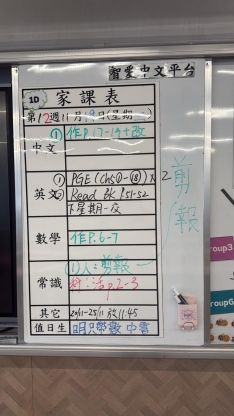 智愛中文平台
1D 家課表
第12週11月19日(星期二)
中文 ① 作P.17-19+改
英文 ① PGE(Ch5①-⑱) x 2
② Read 水 P.51-52
下星期一交
數學 作P.6-7
常識 (1)人:剪報一
科:活p.2-3
其它 20/11-25/11
值日生
剪報
roup3
roupG